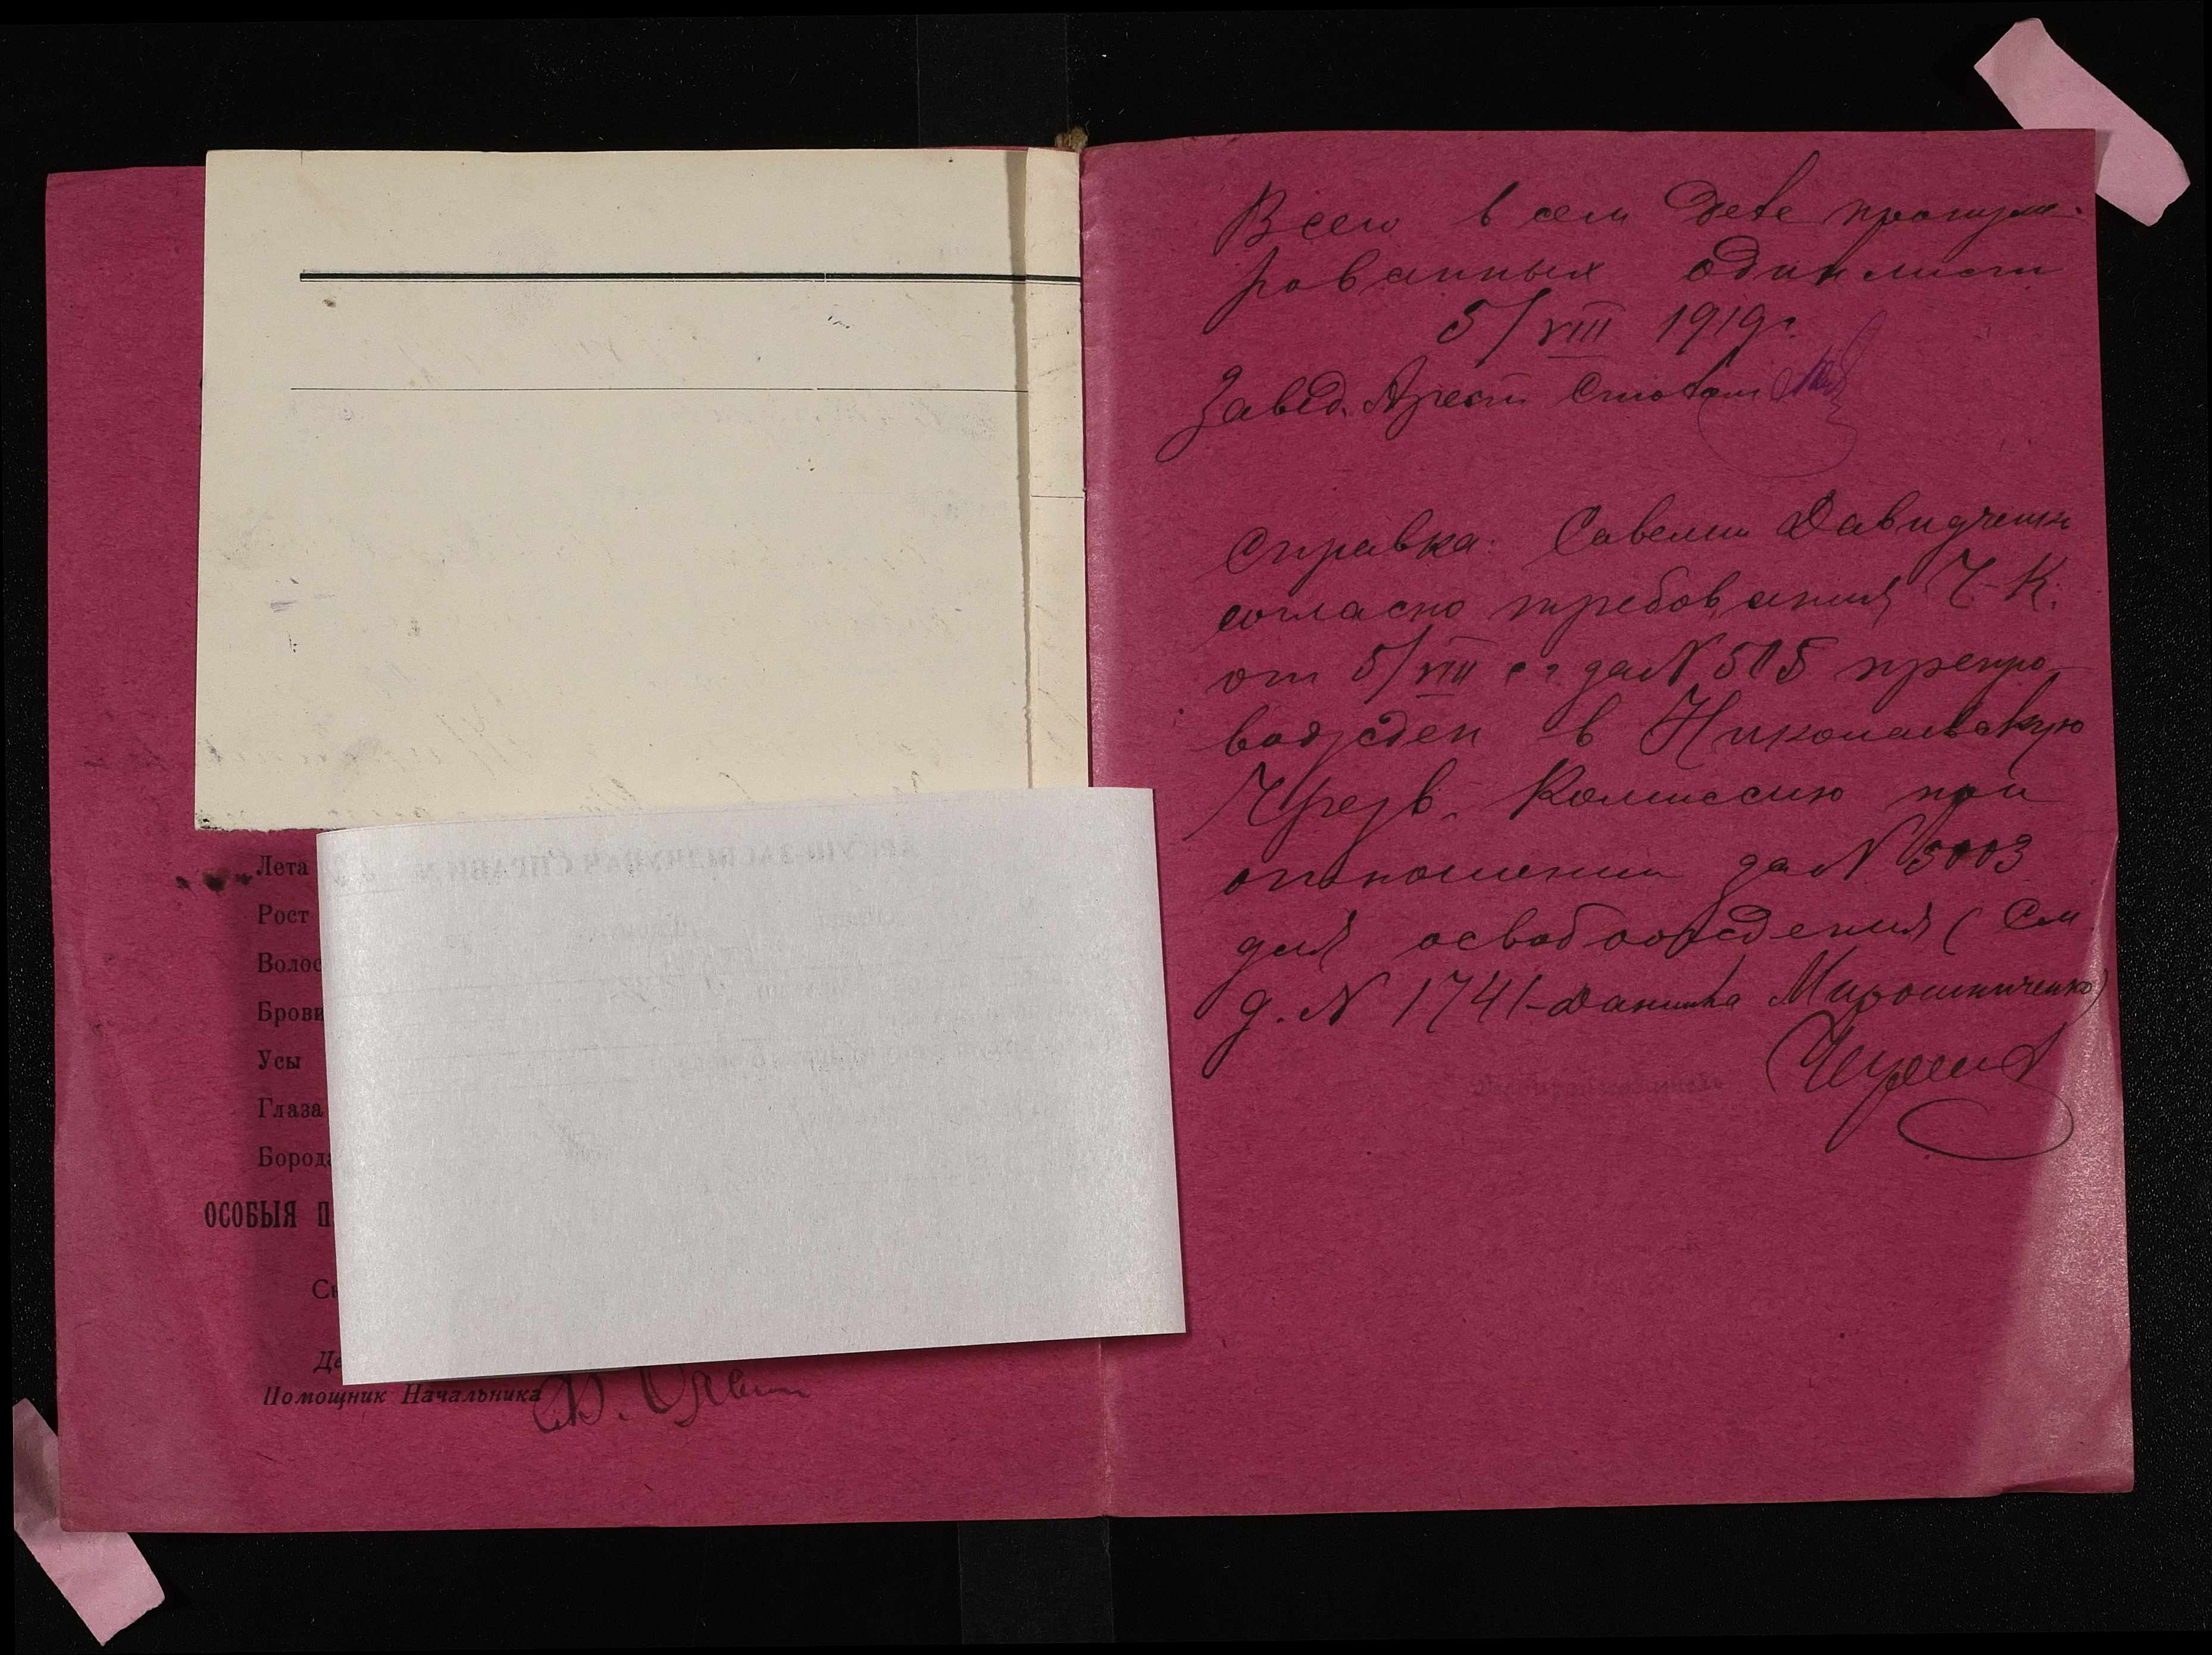 Лета
Рост
Волос
Брови
Усы
Глаза
Борода
ОСОБЫЯ П
Помощник Начальника
Всего в сем деле пронуме-
рованных один лист
5/VIII 1919 г.
Завед. Арест столом
Справка: Савелий Давидченко
согласно требования Ч-К.
от 5/VIII с г за № 515 препро-
вожден в Николаевскую
Чрезв. Комиссию при
отношении за № 5003
для освобоождения (См
д. № 1741-Данила Мирошниченко)